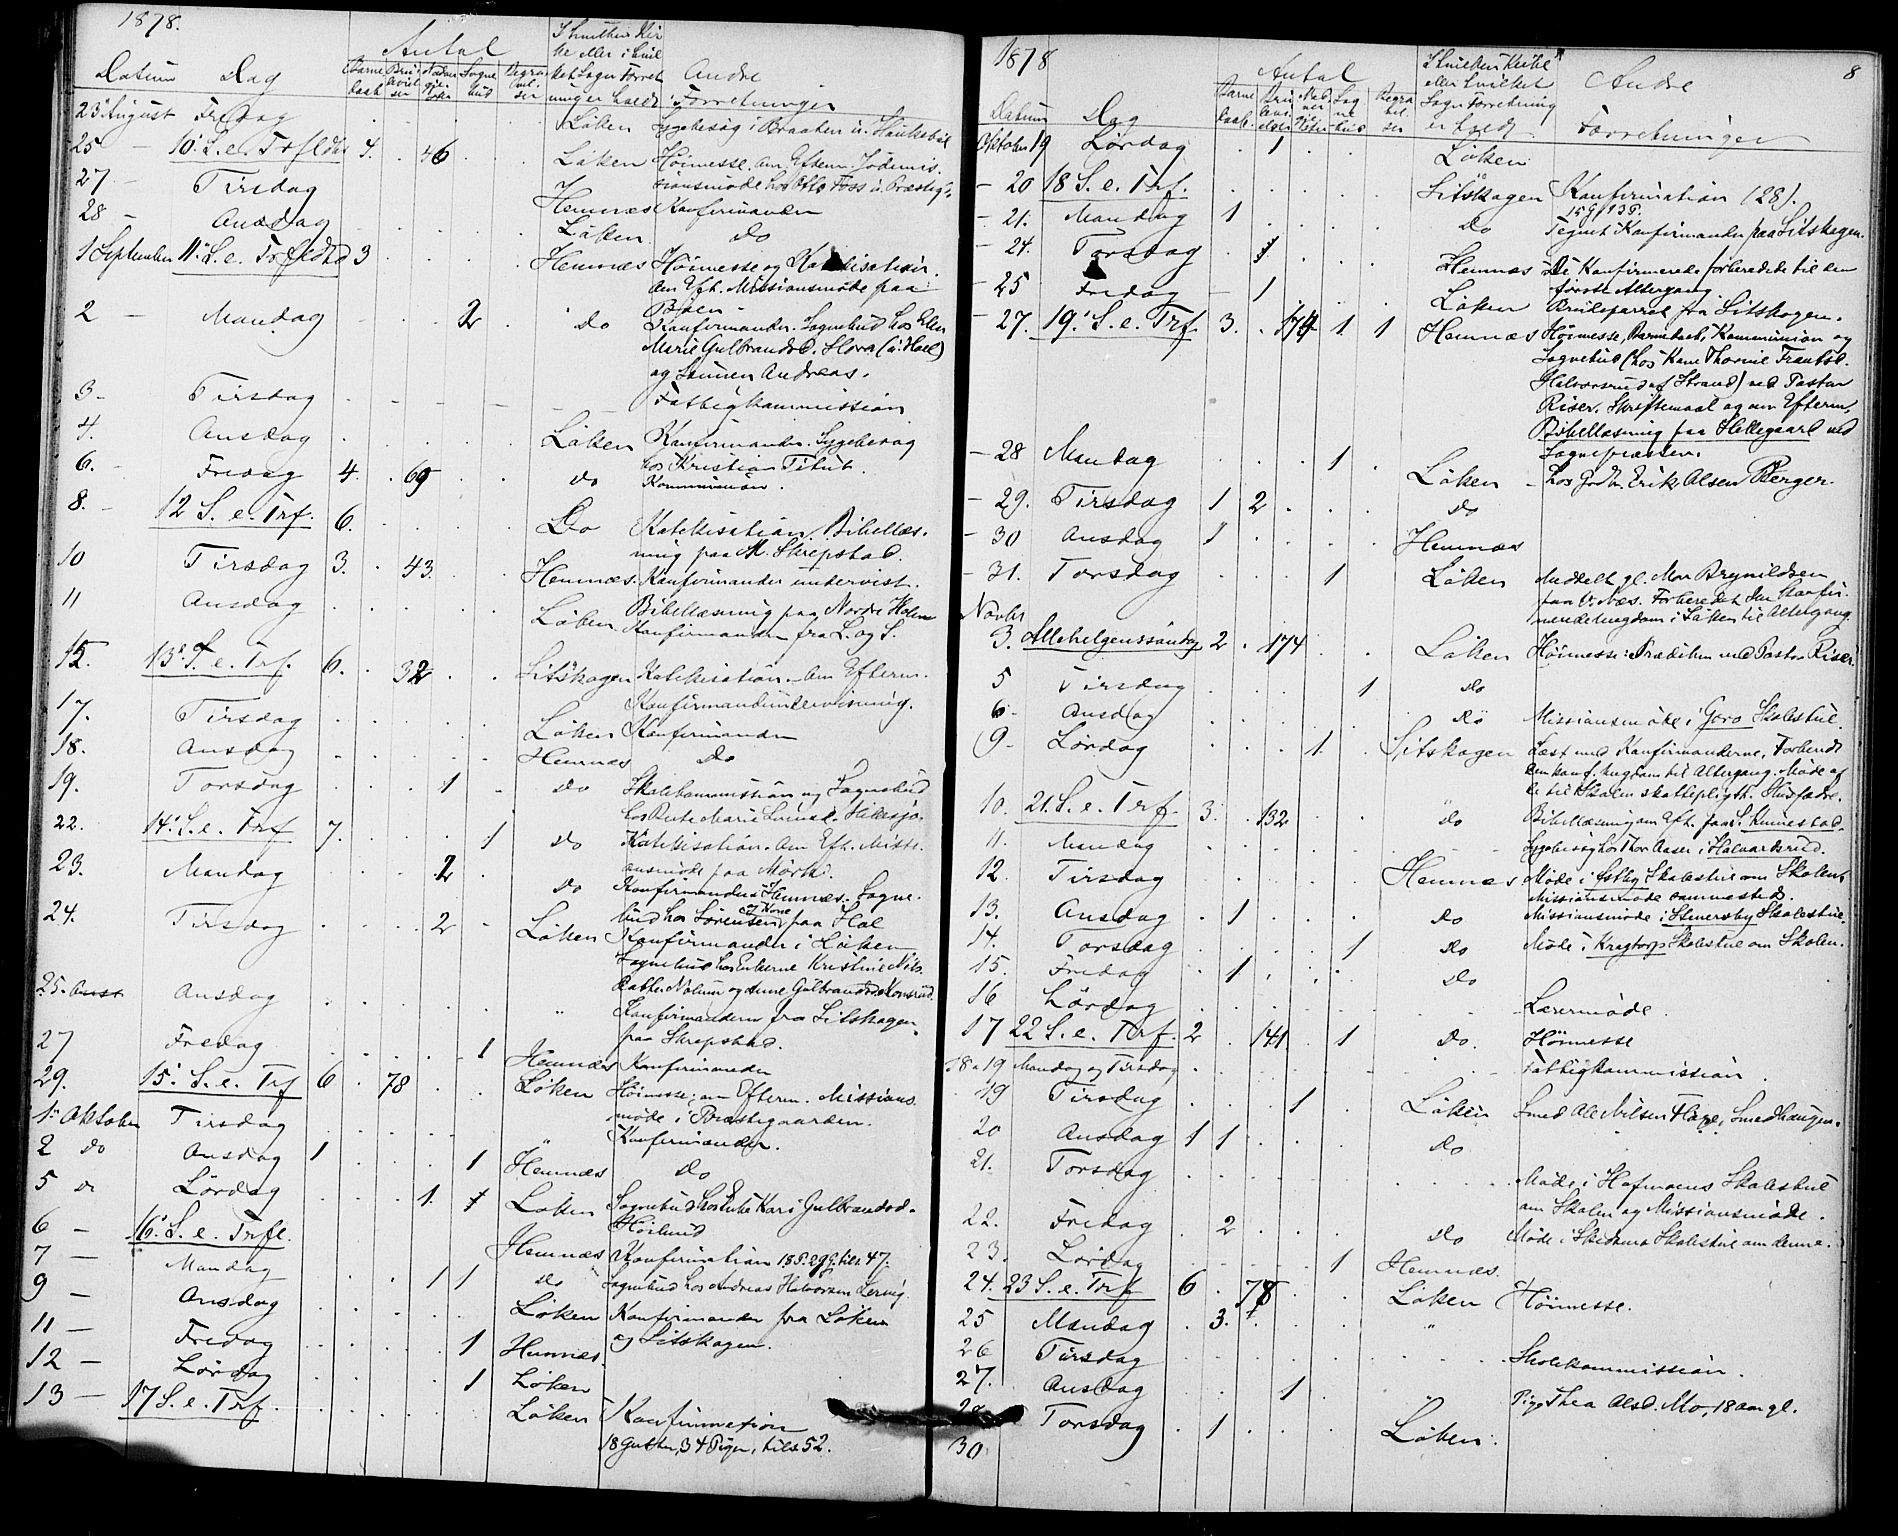 1878.
Antal
I hvilken Kir
ke eller i hvil
ket Sogn Forret
ninger holdt
Andre
Forretninger
Datum Dag Barne daab Brudevielser Nadver gjester Sogne bud Begra vel ser
23 August Fredag Løken Sygebesøg i Braaten
25 - 10. S. e. Trfldh 4. 46 Løken Høimesse. Om Efterm. Jødemis
sionsmøde hos Foss
27 - Tirsdag Hemnæs Konfirmander
28 - Onsdag Løken do
1 September 11. S. e. Trfldhd 3 Hemnæs Høimesse og Katekisation.
Om Eft. Missionsmøde paa
2 - Mandag 2 do Konfirmander. Sognebud hos Ellen
Marie Gulbrandsd.
og Andreas.
3 - Tirsdag Fattigkommission
4. Onsdag Løken Konfirmander. Sygebesøg
hos Kristian
6. - Fredag 4. 69 do Kommunion.
8. - 12 S. e. Trf. 6. Do Katekisation, Bibellæs-
ning paa M. Skrepstad.
10 Tirsdag 3. 43. Hemnæs. Konfirmander undervist.
11 Onsdag Løken Bibellæsning paa Nordre Holm
Konfirmander fra L. og S.
15. 13. S. e. Trf. 6. 32 Sitskogen Katekisation. Om Efterm.
Konfirmandundervisning.
17. Tirsdag Løken Konfirmander
18. Onsdag Hemnæs do
19. Torsdag 1 do Skolekommission og Sognebud
hos Marie
22. 14. S. e. Trf 7. 1 do Katekisation. Om Eft. Missi-
onsmøde paa Mørk.
23. Mandag 2 do Konfirmander i Hemnæs. Sogne-
bud hos Sørensen og Kone paa Hol
24. Tirsdag 2 Løken Konfirmander i Løken
Sognebud hos Enkerne Kristine Nils
datter og Anne Gulbrandsd.
25. Onsdag " Konfirmanderne fra Sitskogen
paa Skrepstad.
27 Fredag 1 Hemnæs Konfirmander
29. 15. S. e. Trf 6 78 Løken Høimesse; om Efterm. Missions
møde i Præstegaarden.
1 Oktober Tirsdag " Konfirmander.
2 do Onsdag 1 1 Hemnæs do
5 do Lørdag 1. 1 Løken Sognebud hos Enke Kari Gulbrandsd.
6 - 16. S. e. Trfl. Hemnæs Konfirmation 18 P. 29 G. tils. 47.
7 - Mandag 1 1 do Sognebud hos Andreas Halvorsen
9 - Onsdag Løken Konfirmander fra Løken
og Sitskogen.
11 - Fredag 1 Hemnæs.
12 - Lørdag 1 Løken
13 - 17 S. e. Trf. Løken Konfirmation
18 Gutter, 34 Piger, tils 52.
1878
8
Antal
I hvilken Kirke
eller i hvilket
Sogn Forretning
er holdt
Andre
Forretninger
Datum Dag Barne daab. Bru devi elser Nad ver gjester Sog ne bud Begra vel ser
Oktober 19 Lørdag 1 Løken
- 20 18 S. e. Trf. Sitskogen Konfirmation (28).
15 G 13 P.
- 21. Mandag 1 do Tegnet Konfirmander paa Sitskogen.
- 24. Torsdag 1 Hemnæs De Konfirmerede forberedede til den
første Altergang
- 25 Fredag 1 Løken Brudeparret fra Sitskogen.
- 27. 19. S. e. Trf. 3. 174 1 1 Hemnæs Høimesse, Barnedaab, Kommunion og
Sognebud (hos Kone Thorine Frantsd.
Halvorsrud af Strand) ved Pastor
Riser. Skriftemaal og om Efterm,
Bibellæsning paa Hellegaard ved
Sognepræsten.
- 28 Mandag 1 Løken - hos Gdbr. Erik Olsen Berger.
- 29. Tirsdag 1 2 do
- 30 Onsdag 1 Hemnæs
- 31. Torsdag 1 Løken Meddelt gl. Mor Brynildsen
paa V. Næs. Forberedet den konfir-
merede Ungdom i Løken til Altergang
Novbr
3. Allehelgenssøndag 2 174 Løken Høimesse: Prædiken ved Pastor Riser
5 Tirsdag 1 do
6 - Onsdag do Missionsmøde i Goro Skolestue.
9 - Lørdag 1. Sitskogen Læst med Konfirmanderne, Forberedt
den konf. Ungdom til Altergang. Møde af
de til Skolen skattepligt. Husfædre.
10. 21. S. e. Trf. 3. 132 do Bibellæsning om Eft. paa S. Kinnestad.
11. Mandag - - Sygebesøg hos Thor Aaser i Halvorsrud.
12. Tirsdag Hemnæs Møde i Østby Skolestue om Skolen,
Missionsmøde sammested.
13. Onsdag 1 do Missionsmøde i Stenersby Skolestue.
14. Torsdag 1 do Møde i Kragtorp Skolestue om Skolen.
15. Fredag 1 do
16 Lördag Lærermøde.
17 22 S. e. Trf. 2 141 1 do. Höimesse
18 o 19 Mandag og Tirsdag Fattigkommission.
19 Tirsdag 1 Løken Smed Ole Nilsen Smedhaugen.
20 Onsdag 1 1 do
21. Torsdag Møde i Hofmoens Skolestue
om Skolen og Missionsmøde.
22. Fredag 2 do Møde i Skolestue om denne.
23. Lørdag 1 Hemnæs.
24. 23 S. e. Trf 6 78 Løken Høimesse.
25 Mandag 3. "
26 Tirsdag Skolekommission.
27. Onsdag 1 " Pige Thea Olsd. Mo, 18 aar gl.
28 Torsdag 1 Løken.
30